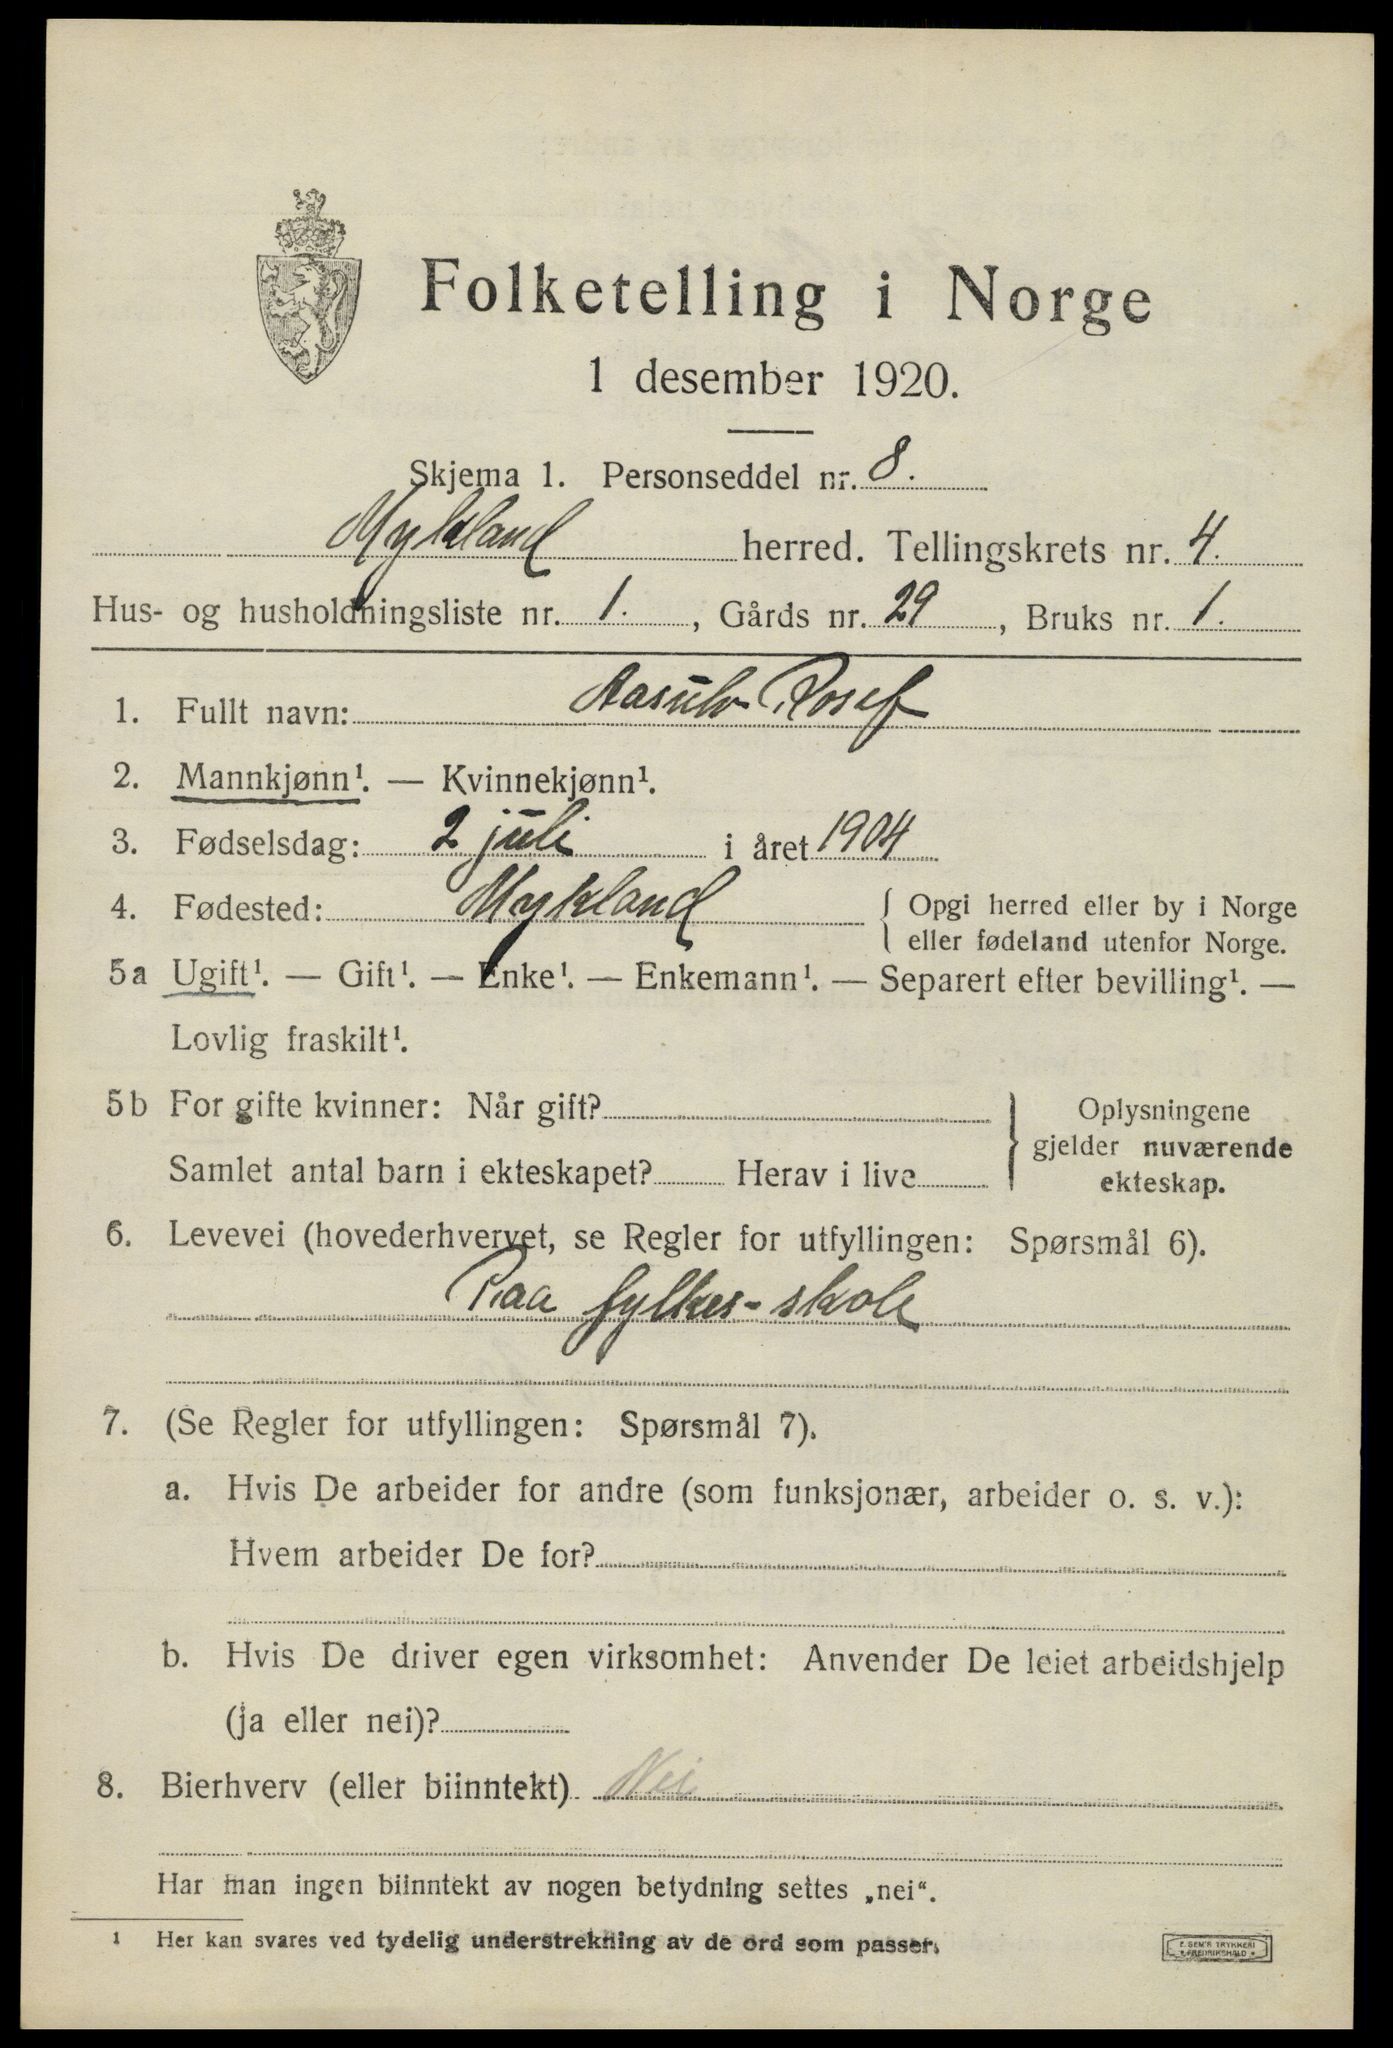 Folketelling i Norge
1 desember 1920.
Skjema 1. Personseddel nr. 8.
Mykland herred. Tellingskrets nr. 4.
Hus- og husholdningsliste nr. 1. , Gårds nr. 29 , Bruks nr. 1.
1. Fullt navn: Aasulv Rosef
2. Mannkjønn¹. — Kvinnekjønn¹.
3. Fødselsdag: 2 juli i året 1904
4. Fødested: Mykland { Opgi herred eller by i Norge
eller fødeland utenfor Norge.
5a Ugift¹. — Gift¹. — Enke¹. — Enkemann¹. — Separert efter bevilling¹. —
Lovlig fraskilt¹.
5b For gifte kvinner: Når gift? } Oplysningene
gjelder nuværende
Samlet antal barn i ekteskapet? Herav i live
ekteskap.
6. Levevei (hovederhvervet, se Regler for utfyllingen: Spørsmål 6).
Paa fylkes-skole
7. (Se Regler for utfyllingen: Spørsmål 7).
a. Hvis De arbeider for andre (som funksjonær, arbeider o. s. v.):
Hvem arbeider De for?
b. Hvis De driver egen virksomhet: Anvender De leiet arbeidshjelp
(ja eller nei)?
8. Bierhverv (eller biinntekt) Nei
Har man ingen biinntekt av nogen betydning settes „nei“.
1 Her kan svares ved tydelig understrekning av de ord som passer.
E. SEM'S TRYKKERI
FREDRIKSHALD